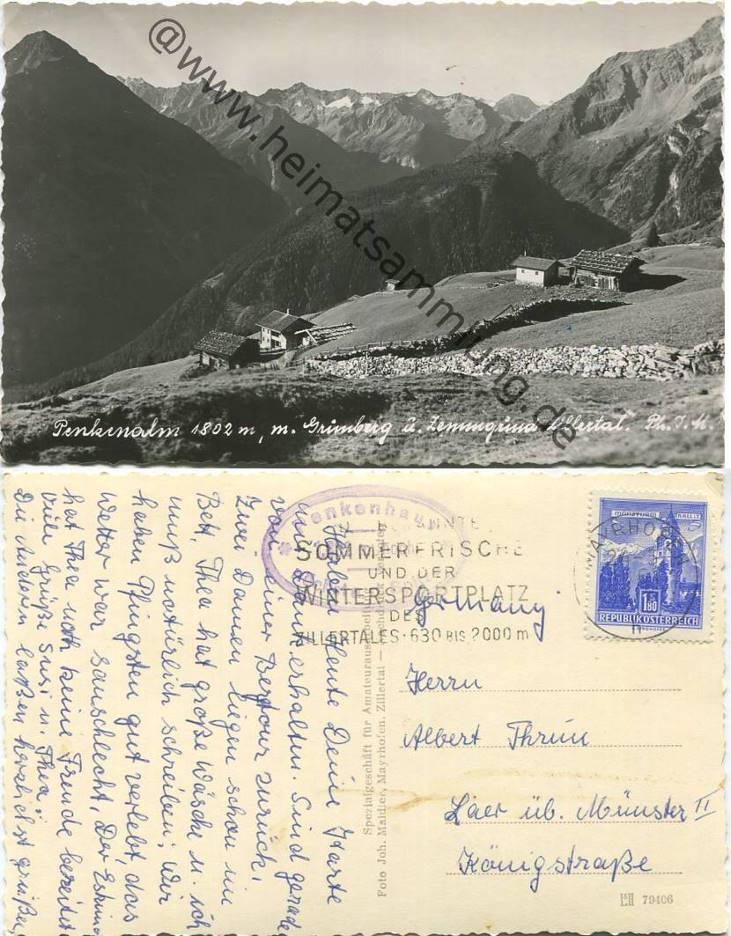 @www.heimatsammlung.de
Penkenalm 1802 m, m. Grünberg u. Zemmgrund Zillertal. Ph. J. M.
Penkenhaus
BEKANNTE
SOMMERFRISCHE
UND DER
WINTERSPORTPLATZ
DES
ZILLERTALES · 630 BIS 2000 m
MAYRHOFEN
1.80
REPUBLIK ÖSTERREICH
Haben heute Deine Karte
mit Dank erhalten. Sind gerade
von einer Bergtour zurück.
Zwei Damen liegen schon im
Bett, Thea hat große Wäsche u. ich
muß natürlich schreiben. Wir
haben Pfingsten gut verlebt, das
Wetter war sauschlecht. Der
hat Thea noch keine Freude bereitet
Viele Grüße Susi u. Thea.
Die Anderen laßen herzlichst grüßen
Spezialgeschäft für
Foto Joh. Maidler, Mayrhofen, Zillertal
Germany
Herrn
Albert Thrun
Laer üb. Münster II
Königstraße
79406